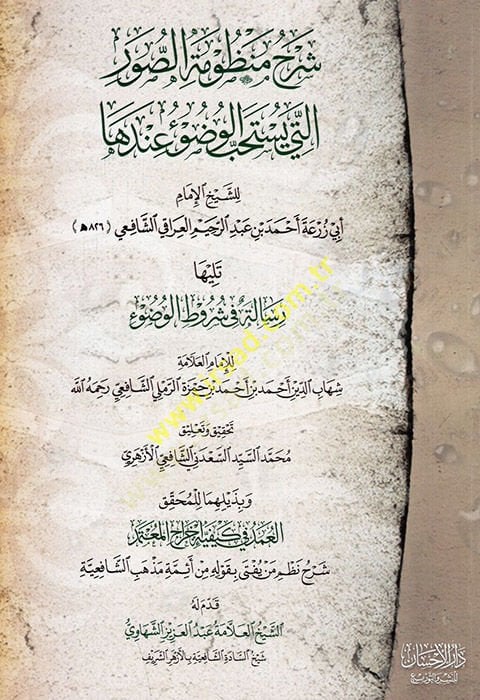 شرح منظومة الصور
التي يستحب الوضوء عندها
للشيخ الإمام
أبي زرعة أحمد بن عبد الرحيم العراقي الشافعي (٨٢٦هـ)
تليها
رسالة في شروط الوضوء
للإمام العلامة
شهاب الدين أحمد بن أحمد بن حمزة الرملي الشافعي رحمه الله
تحقيق وتعليق
محمد السيد السعدني الشافعي الأزهري
وبذيلهما للمحقق
العمد في كيفية إخراج المعتمد
شرح نظم من يفتى بقوله من أئمة مذهب الشافعية
قدم له
الشيخ العلامة عبد العزيز الشهاوي
شيخ السادة الشافعية بالأزهر الشريف
دار الإحسان
للنشر والتوزيع